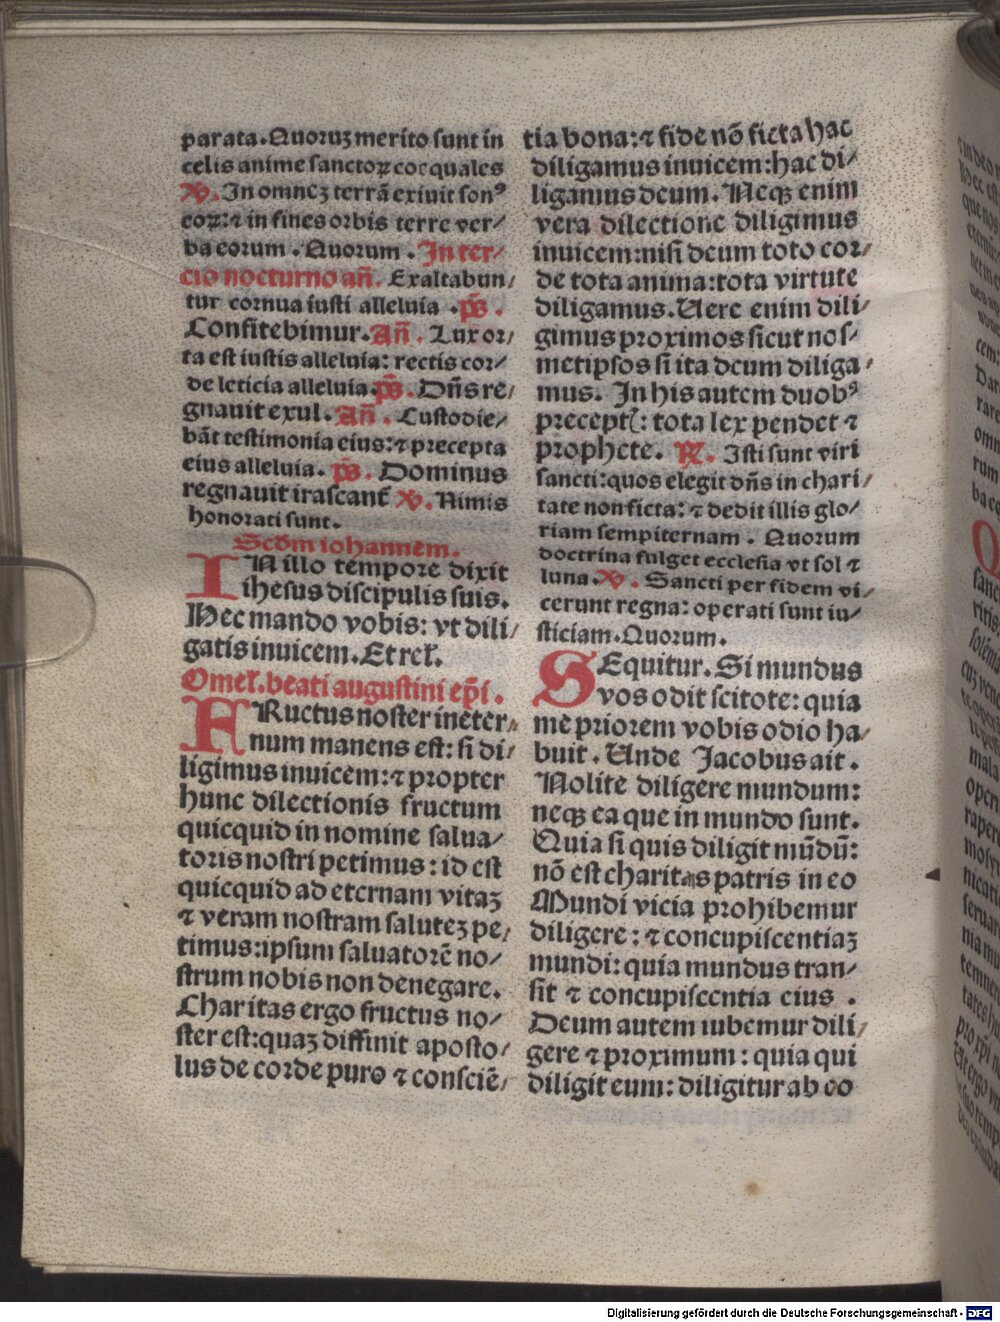 parata. Quoruꝫ merito sunt in
celis anime sanctoꝝ coequales
℣. In omneꝫ terrã exiuit sonꝰ
eoꝝ: ⁊ in fines orbis terre ver⸗
ba eorum. Quorum. In ter⸗
cio nocturno añ. Exaltabun⸗
tur cornua iusti alleluia. p̃s.
Confitebimur. Añ. Lux or⸗
ta est iustis alleluia: rectis cor⸗
de leticia alleluia. p̃s. Dñs re⸗
gnauit exul. Añ. Custodie⸗
bãt testimonia eius: ⁊ precepta
eius alleluia. p̃s. Dominus
regnauit irascant̃ ℣. Nimis
honorati sunt.
Scđm iohannem.
IN illo tempore dixit
ihesus discipulis suis.
Hec mando vobis: vt dili⸗
gatis inuicem. Et reł.
Omeł. beati augustini ep̃i.
FRuctus noster in eter⸗
num manens est: si di⸗
ligimus inuicem: ⁊ propter
hunc dilectionis fructum
quicquid in nomine salua⸗
toris nostri petimus: id est
quicquid ad eternam vitaꝫ
⁊ veram nostram saluteꝫ pe⸗
timus: ipsum saluatorẽ no⸗
strum nobis non denegare.
Charitas ergo fructus no⸗
ster est: quaꝫ diffinit aposto⸗
lus de corde puro ⁊ consciẽ⸗
tia bona: ⁊ fide nõ ficta hac
diligamus inuicem: hac di⸗
ligamus deum. Neqꝫ enim
vera dilectione diligimus
inuicem: nisi deum toto cor⸗
de tota anima: tota virtute
diligamus. Uere enim dili⸗
gimus proximos sicut nos⸗
metipsos si ita deum diliga⸗
mus. In his autem duobꝰ
preceptꝭ: tota lex pendet ⁊
prophete. ℟. Isti sunt viri
sancti: quos elegit dñs in chari⸗
tate non ficta: ⁊ dedit illis glo⸗
riam sempiternam. Quorum
doctrina fulget ecclesia vt sol ⁊
luna. ℣. Sancti per fidem vi⸗
cerunt regna: operati sunt iu⸗
sticiam. Quorum.
SEquitur. Si mundus
vos odit scitote: quia
me priorem vobis odio ha⸗
buit. Unde Jacobus ait.
Nolite diligere mundum:
neqꝫ ea que in mundo sunt.
Quia si quis diligit mũdũ:
nõ est charitas patris in eo
Mundi vicia prohibemur
diligere: ⁊ concupiscentiaꝫ
mundi: quia mundus tran⸗
sit ⁊ concupiscentia eius.
Deum autem iubemur dili⸗
gere ⁊ proximum: quia qui
diligit eum: diligitur ab eo
Digitalisierung gefördert durch die Deutsche Forschungsgemeinschaft - DFG